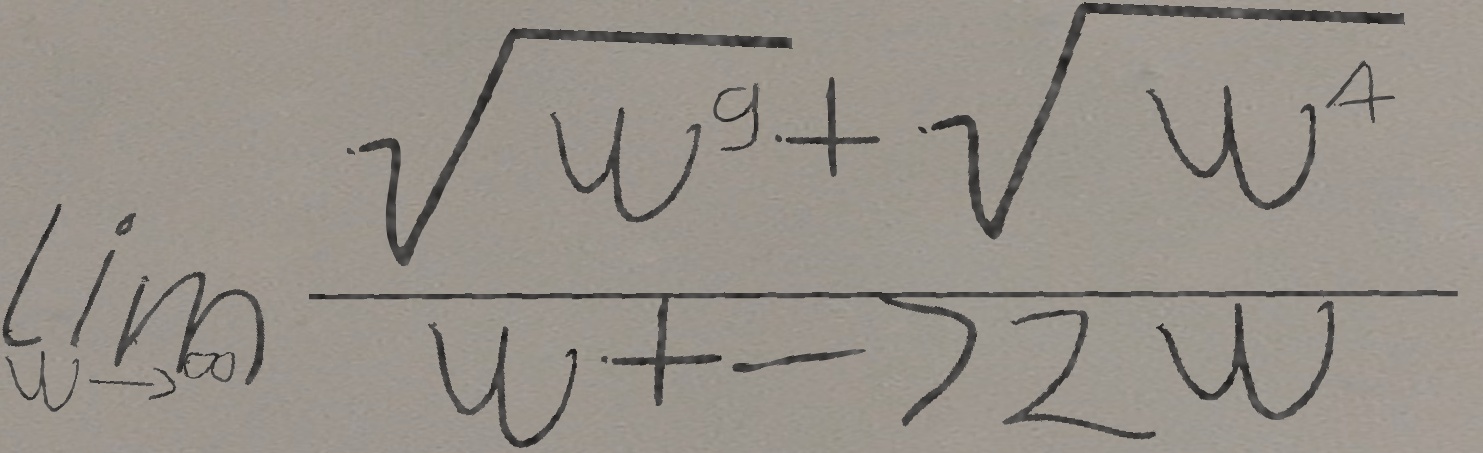 \lim_{w \to \infty} \frac{\sqrt{w^9} + \sqrt{w^4}}{w + -72w}